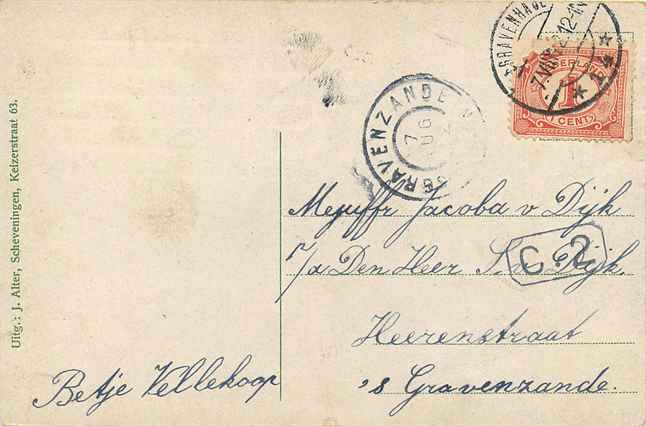 Uitg.: J. Alter, Scheveningen, Keizerstraat 63.
'S GRAVENHAGE
12-1N
NEDERLAND
1
CENT
'SGRAVENZANDE
7
AUG
Mejuffr Jacoba v Dijk
p/a Den Heer S. v. Dijk.
C.2
Heerenstraat
's Gravenzande.
Betje Vellekoop